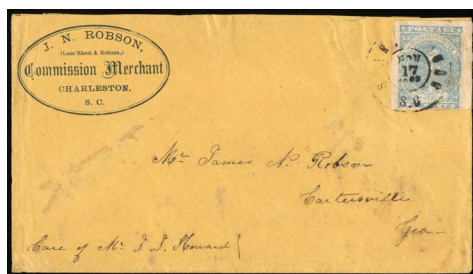 J. N. ROBSON,
(Late Rhett & Robson,)
Commission Merchant
CHARLESTON,
S. C.
POSTAGE
NOV
17
S.C
Mr. James N. Robson
Cartersville
Geo
Care of Mr.